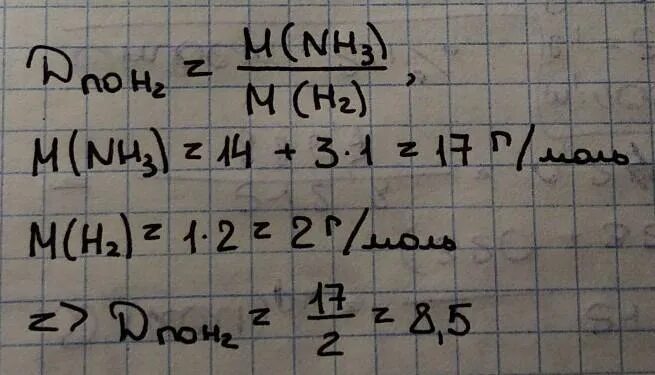 D по H₂ = M(NH₃) / M(H₂) ,
M(NH₃) = 14 + 3·1 = 17 г/моль
M(H₂) = 1·2 = 2 г/моль
=> D по H₂ = 17/2 = 8,5